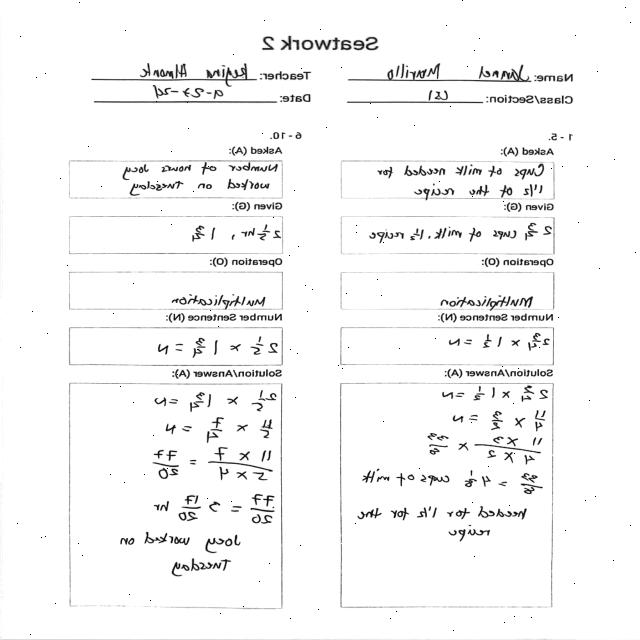 Seatwork 2
Name: Jannel Morillo Teacher: Regina Almonte
Class/Section: Date:
1 - 5.
Asked (A):
Cups of milk needed for
1 1/2 of the recipe
Given (G):
2 3/4 cups of milk, 1 1/2 recipe
Operation (O):
Multiplication
Number Sentence (N):
2 3/4 x 1 1/2 = n
Solution/Answer (A):
2 3/4 x 1 1/2 = n
11/4 x 3/2 = n
11 x 3
4 x 2
33/8 = 4 1/8 cups of milk
needed for 1 1/2 for the
recipe
6 - 10.
Asked (A):
Number of hours Joey
worked on Tuesday
Given (G):
2 1/5 hr, 1 3/4
Operation (O):
Multiplication
Number Sentence (N):
2 1/5 x 1 3/4 = n
Solution/Answer (A):
2 1/5 x 1 3/4 = n
11/5 x 7/4 = n
11 x 7 / 5 x 4 = 77/20
77/20 = 3 17/20 hr
Joey worked on
Tuesday